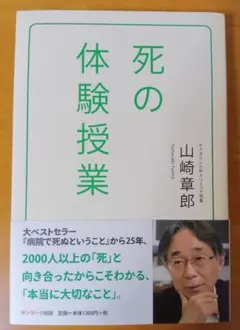 死の
体験授業
山崎章郎
大ベストセラー
『病院で死ぬということ』から25年、
2000人以上の「死」と
向き合ったからこそわかる、
「本当に大切なこと」。
サンマーク出版 定価=本体1300円+税